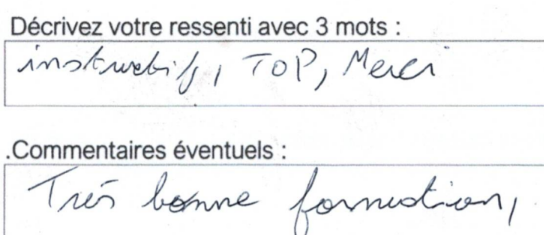 Décrivez votre ressenti avec 3 mots :
instructif, TOP, Merci
.Commentaires éventuels :
Très bonne formation,